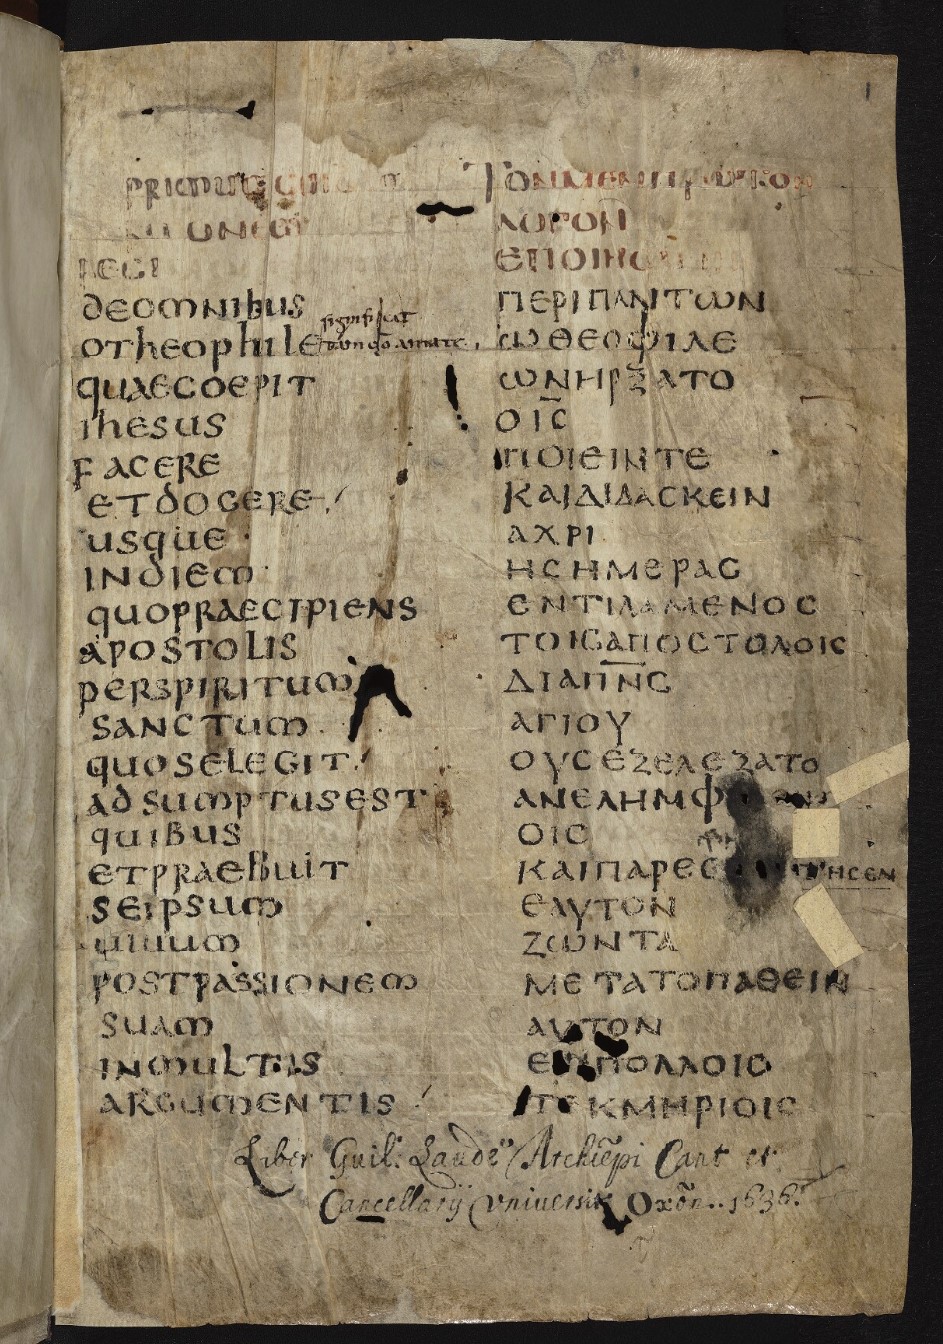 1
PRIMUM ΤΟΝΜΕΝΠΡΩΤΟΝ
ΛΟΓΟΝ
FECI ΕΠΟΙΗΣΑΜΗΝ
DEOMNIBUS ΠΕΡΙΠΑΝΤΩΝ
significat
OTHEOPHILE ΩΘΕΟΦΙΛΕ
QUAECOEPIT ΩΝΗΡΞΑΤΟ
IHESUS ΟΙϹ
FACERE ΠΟΙΕΙΝΤΕ
ETDOCERE ΚΑΙΔΙΔΑϹΚΕΙΝ
USQUE ΑΧΡΙ
INDIEM ΗϹΗΜΕΡΑϹ
QUOPRAECIPIENS ΕΝΤΙΛΑΜΕΝΟϹ
APOSTOLIS ΤΟΙϹΑΠΟϹΤΟΛΟΙϹ
PERSPIRITUM ΔΙΑΠΝϹ
SANCTUM ΑΓΙΟΥ
QUOSELEGIT ΟΥϹΕΞΕΛΕΞΑΤΟ
ADSUMPTUSEST ΑΝΕΛΗΜΦ
QUIBUS ΟΙϹ
ETPRAEBUIT ΚΑΙΠΑΡΕϹΤΗϹΕΝ
SEIPSUM ΕΑΥΤΟΝ
UIUUM ΖΩΝΤΑ
POSTPASSIONEM ΜΕΤΑΤΟΠΑΘΕΙΝ
SUAM ΑΥΤΟΝ
INMULTIS ΕΝΠΟΛΛΟΙϹ
ARGUMENTIS ΤΕΚΜΗΡΙΟΙϹ
Liber Guil: Laudi Archiepi Cant et
Cancellarij Vniuersit Oxōn.. 1636.